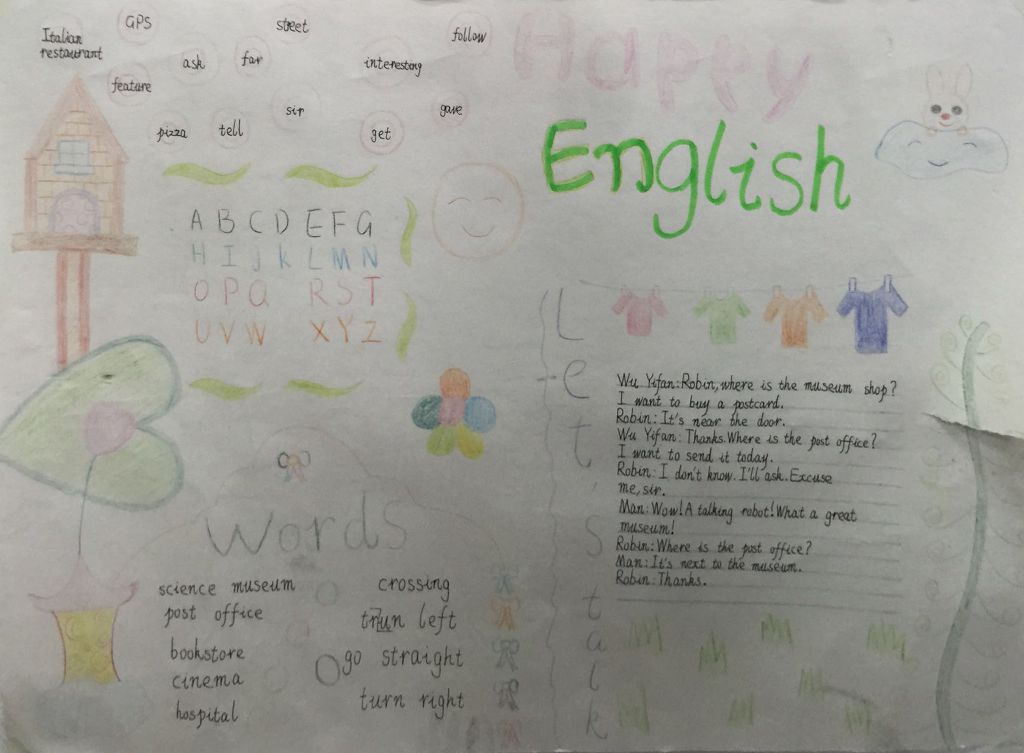 Italian
restaurant
GPS
street
follow
ask
far
interesting
feature
sir
gave
pizza
tell
get
Happy
English
A B C D E F G
H I J K L M N
O P Q R S T
U V W X Y Z
Let's talk
Wu Yifan:Robin, where is the museum shop?
I want to buy a postcard.
Robin: It's near the door.
Wu Yifan: Thanks. Where is the post office?
I want to send it today.
Robin: I don't know. I'll ask. Excuse
me, sir.
Man: Wow! A talking robot! What a great
museum!
Robin: Where is the post office?
Man: It's next to the museum.
Robin: Thanks.
Words
science museum
post office
bookstore
cinema
hospital
crossing
left
go straight
turn right